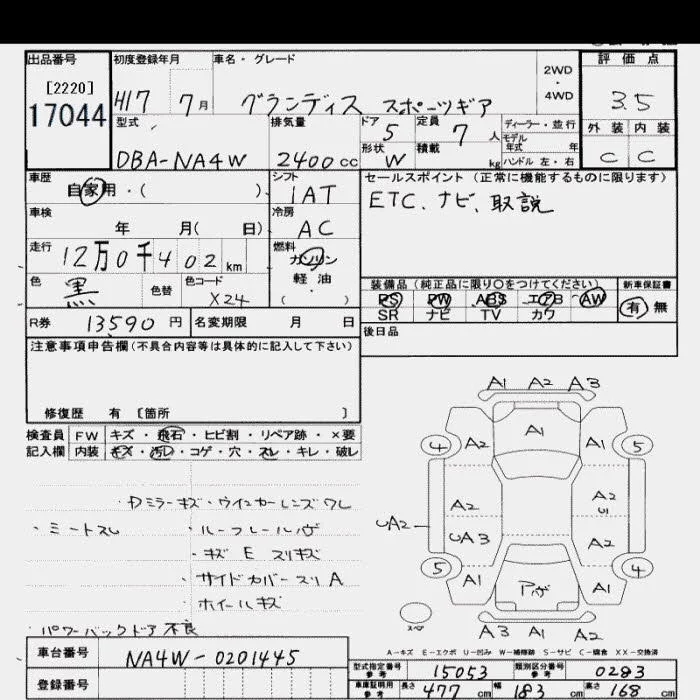 出品番号
[2220]
17044
初度登録年月
H17 7月
車名・グレード
グランディス スポーツギア
2WD
・
4WD
評価点
3.5
外装 内装
C C
型式
DBA-NA4W
排気量
2400cc
ドア 5
形状 W
定員 7人
積載 kg
ディーラー・並行
モデル
年式 年
ハンドル 左・右
車歴
自家用・( )
シフト
IAT
車検
年 月( 日)
冷房
AC
走行
12万0千402km
燃料
ガソリン
軽・油
( )
色
黒
色替
色コード
X24
R券 13,590円
名変期限 月 日
セールスポイント (正常に機能するものに限ります)
ETC、ナビ、取説
装備品 (純正品に限り○をつけてください)
PS PW ABS エアB AW
SR ナビ TV カワ
新車保証書
有 無
後日品
注意事項申告欄(不具合内容等は具体的に記入して下さい)
修復歴 有 [箇所 ]
検査員
記入欄
FW キズ・飛石・ヒビ割・リペア跡・×要
内装 キズ・汚レ・コゲ・穴・スレ・キレ・破レ
・Dミラーキズ・ウインカーレンズワレ
・ミートスレ
・ルーフレールハゲ
・キズ E スリキズ
・サイドカバースリA
・ホイールキズ
・パワーバックドア不良
A1 A2 A3
A1
4 A2 A1 5
A2 A2
U1
UA2
UA3 A2
5 A1 アハゲ A1 4
スペア
A3 A1 A2
A-キズ E-エクボ U-凹み W-補修跡 S-サビ C-腐食 XX-交換済
車台番号
NA4W-0201445
登録番号
型式指定番号
参考
15053
類別区分番号
参考
0283
車庫証明用
参考
長さ 477cm 幅 183cm 高さ 168cm